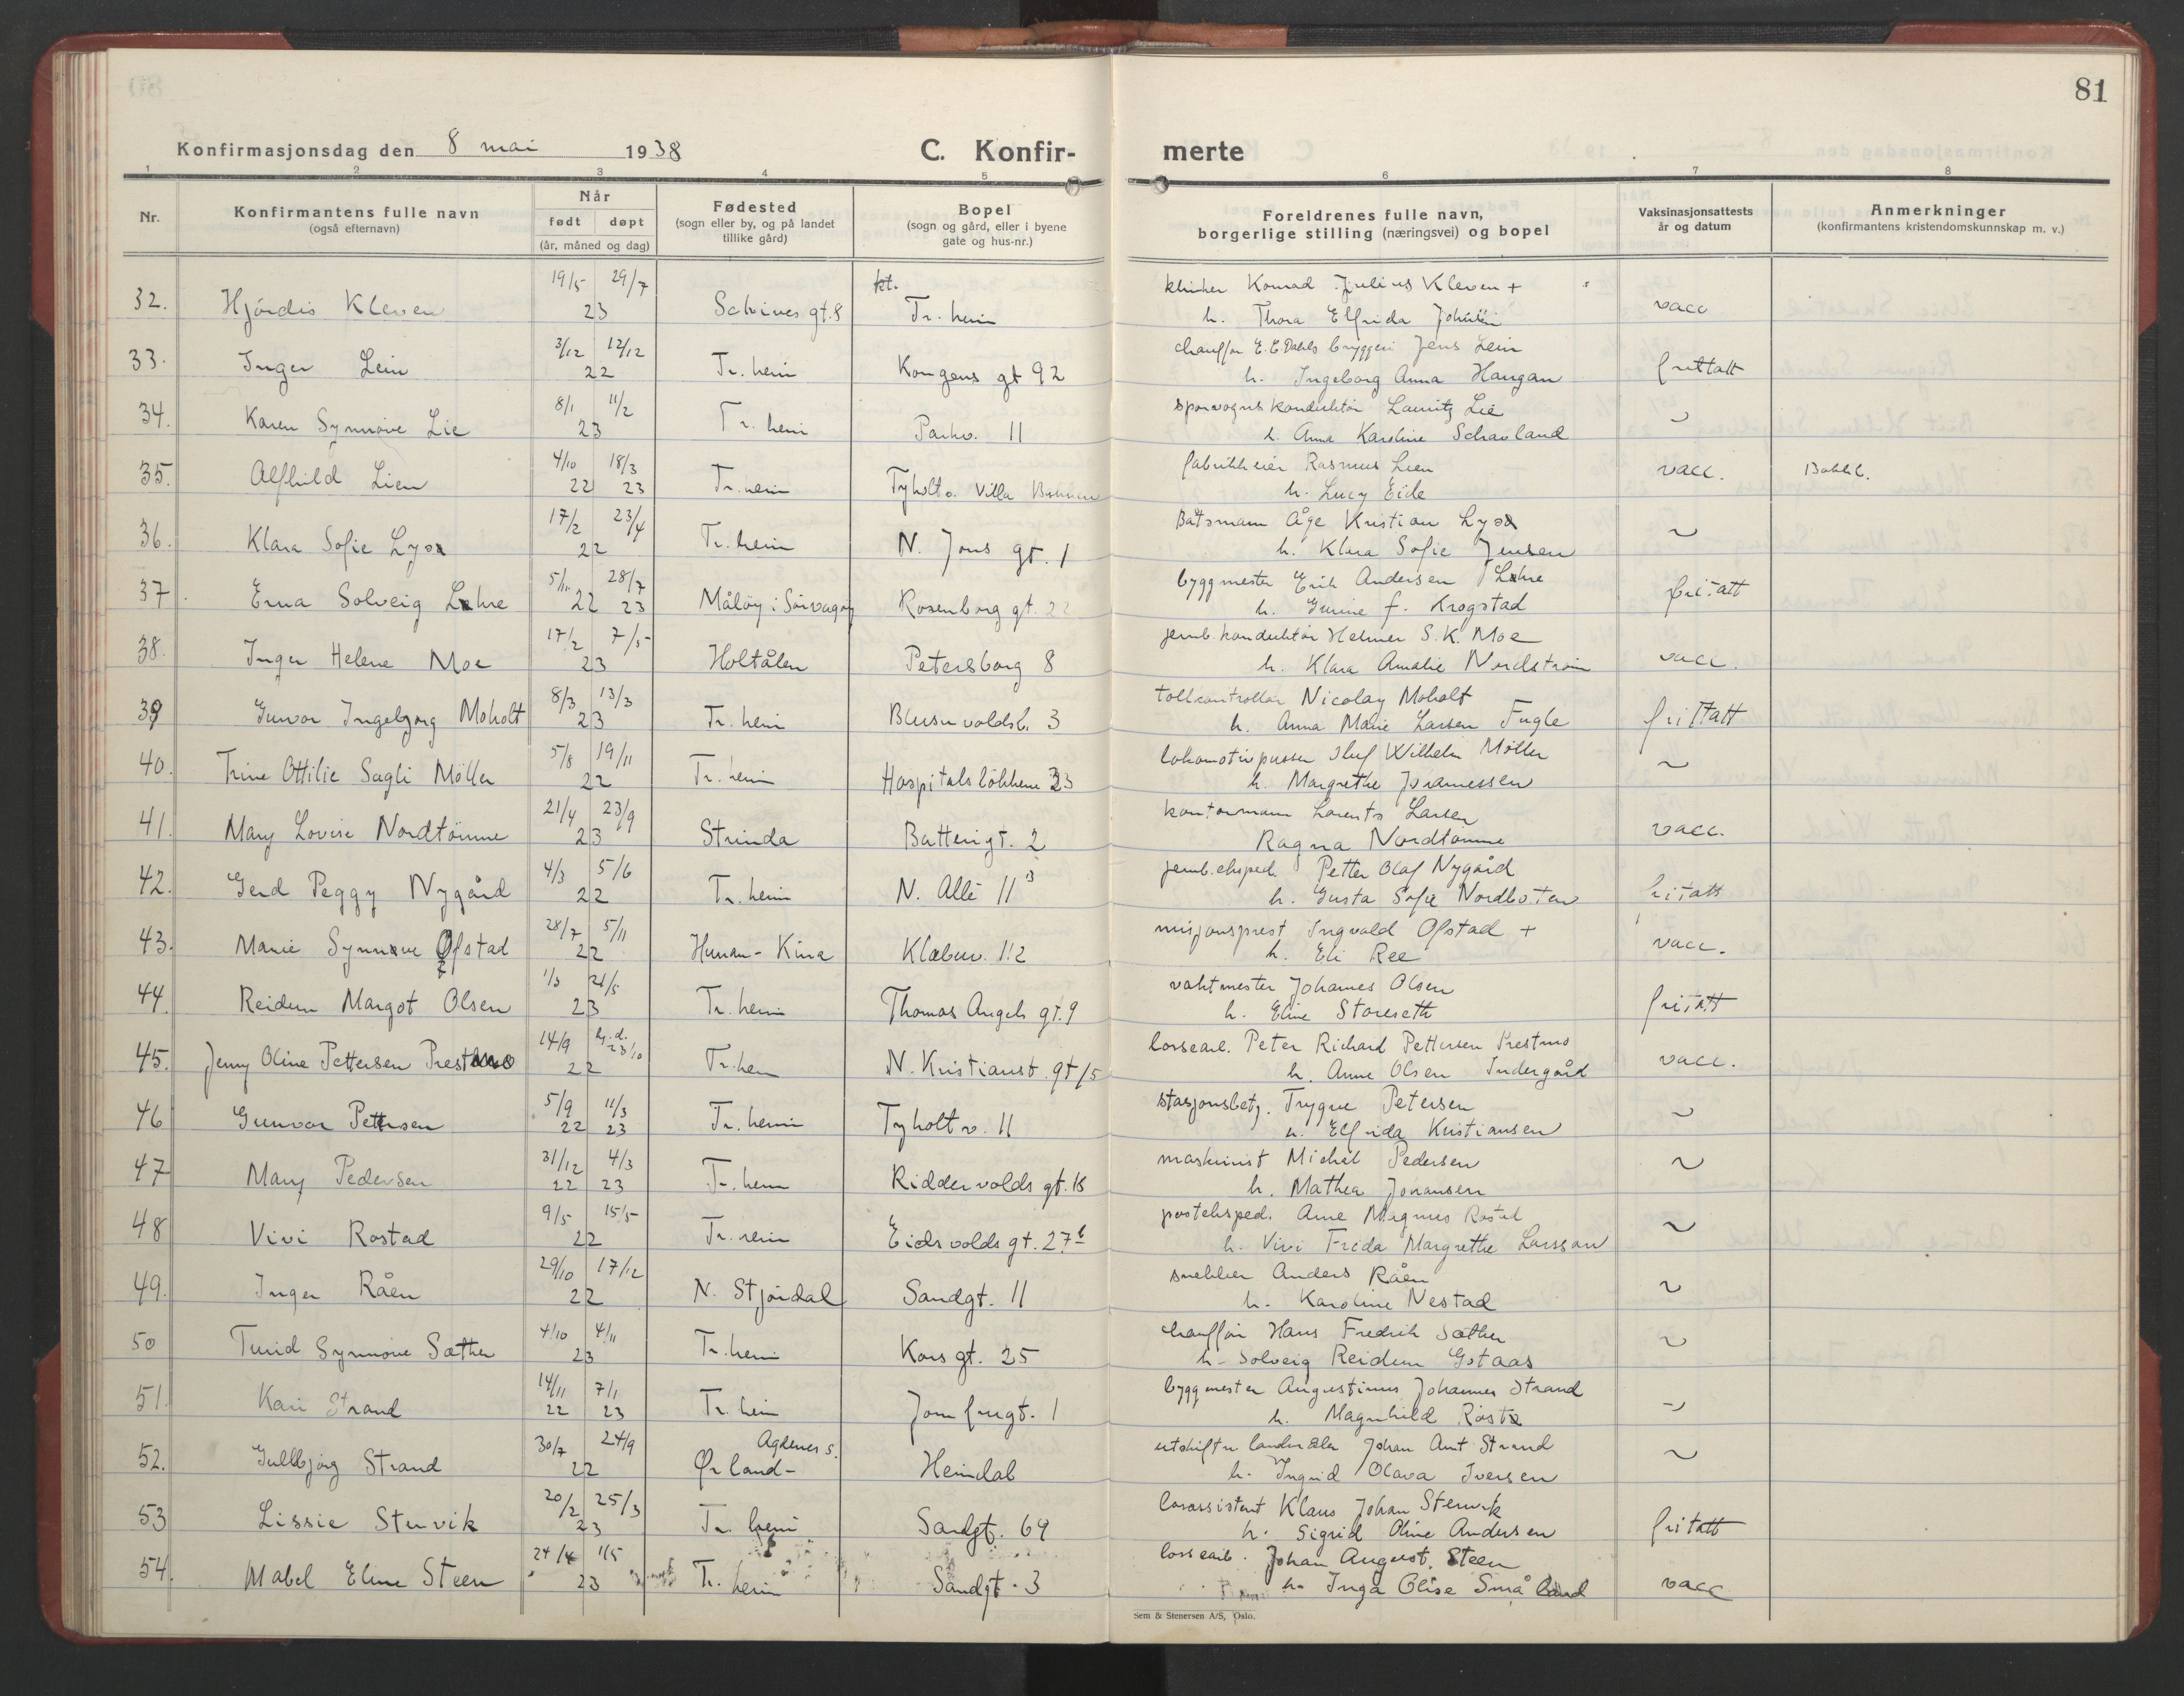 81
Konfirmasjonsdag den 8 mai 1938
C. Konfir-merte
1 2 3 4 5 6 7 8
Nr.
Konfirmantens fulle navn
(også efternavn)
Når
født døpt
(år, måned og dag)
Fødested
(sogn eller by, og på landet
tillike gård)
Bopel
(sogn og gård, eller i byene
gate og hus-nr.)
Foreldrenes fulle navn,
borgerlige stilling (næringsvei) og bopel
Vaksinasjonsattests
år og datum
Anmerkninger
(konfirmantens kristendomskunnskap m. v.)
19/5 29/7 Konrad Julius Kleven +
32. Hjördis Kleven 23 Schives gt. 8 Tr.heim h. Thora Elfrida vacc
3/12 12/12 chauffør E.C. Dahls bryggeri Jens Lein
33. Inger Lein 22 Tr.heim Kongens gt 92 h. Ingeborg Anna Haugan frittatt
8/1 11/2 sporvognskonduktør Lauritz Lie
34. Karen Synnöve Lie 23 Tr.heim Parkv. 11 h. Anna Karoline Schavland ~
4/10 18/3 fabrikkeier Rasmus Lien
35. Alfhild Lien 22 23 Tr.heim Tyholtv. Villa h. Lucy Eide vacc.
17/2 23/4 Båtsmann Åge Kristian
36. Klara Sofie 22 Tr.heim N. Jons gt. 1 h. Klara Sofie Jensen ~
5/11 28/7 byggmester Erik Andersen
37. Erna Solveig 22 23 Måløy i Rosenborg gt. 22 h. f. Krogstad fritatt
17/2 7/5 jernb. konduktør Helmer S. K. Moe
38. Inger Helene Moe 23 Holtålen Petersborg 8 h. Klara Amalie Nordström vacc.
8/3 13/3 tollkontrollør Nicolay Moholt
39 Gunvor Ingebjørg Moholt 23 Tr.heim Blusuvoldsb. 3 h. Anna Marie Larsen Fugle fritatt
5/8 19/11 lokomotivpusser Wilhelm Möller
40. Trine Ottilie Sagli Möller 22 Tr.heim Hospitalslökkene 33 h. Margrethe Johannessen ~
21/4 23/9 kontormann Lorents Larsen
41. Mary Lovise Nordtömme 23 Strinda Batterigt. 2 Ragna Nordtömme vacc.
4/3 5/6 jernb.eksped. Petter Olaf Nygård
42. Gerd Peggy Nygård 22 Tr.heim N. Allé 11 h. Gusta Sofie Nordboten fritatt
28/7 5/11 misjonsprest Ingvald Ofstad +
43. Marie Synnøve Ofstad 22 Hunan - Kina Klæbuv. 112 h. Eli Ree vacc.
1/3 21/5 vaktmester Johannes Olsen
44. Reidun Margot Olsen 23 Tr.heim Thomas Angels gt. 9 h. Eline Storeseth fritatt
14/9 hj.d. 23/10 lossearb. Peter Richard Pettersen Prestmo
45. Jenny Oline Pettersen Prestmo 22 Tr.heim N. Kristianst. gt 15 h. Anne Olsen Indergård vacc.
5/9 11/3 stasjonsbetj. Trygve Petersen
46 Gunvor Petersen 22 23 Tr.heim Tyholtv. 11 h. Elfrida Kristiansen ~
31/12 4/3 maskinist Michal Pedersen
47 Mary Pedersen 22 23 Tr.heim Riddervolds gt. 18 h. Mathea Johansen ~
9/5 15/5 posteksped. Arne Magnus Rostad
48 Vivi Rostad 22 Tr.heim Eidsvolds gt. 27b h. Vivi Frida Margrethe Larsson ~
29/10 17/12 snekker Anders Råen
49. Inger Råen 22 N. Stjördal Sandgt. 11 h. Karoline Nestad ~
4/10 4/11 chauffør Hans Fredrik Sæther
50 Turid Synnöve Sæther 23 Tr.heim Kors gt. 25 h. Solveig Reidun Gotaas ~
14/11 7/1 byggmester Augustinus Johannes Strand
51. Kari Strand 22 23 Tr.heim Jomfrugt. 1 h. Magnhild ~
30/7 24/9 Agdenes s. utskiftn landmåler Johan Arnt Strand
52. Gullbjörg Strand 22 Ørland - Heimdal h. Ingrid Olava Iversen ~
20/2 25/3 losassistent Klaus Johan Stenvik
53 Lissie Stenvik 23 Tr.heim Sandgt. 69 h. Sigrid Oline Andersen fritatt
24/4 1/5 lossearb. Johan August Steen
54. Mabel Eline Steen 23 Tr.heim Sandgt. 3 h. Inga Olise Småland vacc
Sem & Stenersen A/S, Oslo.